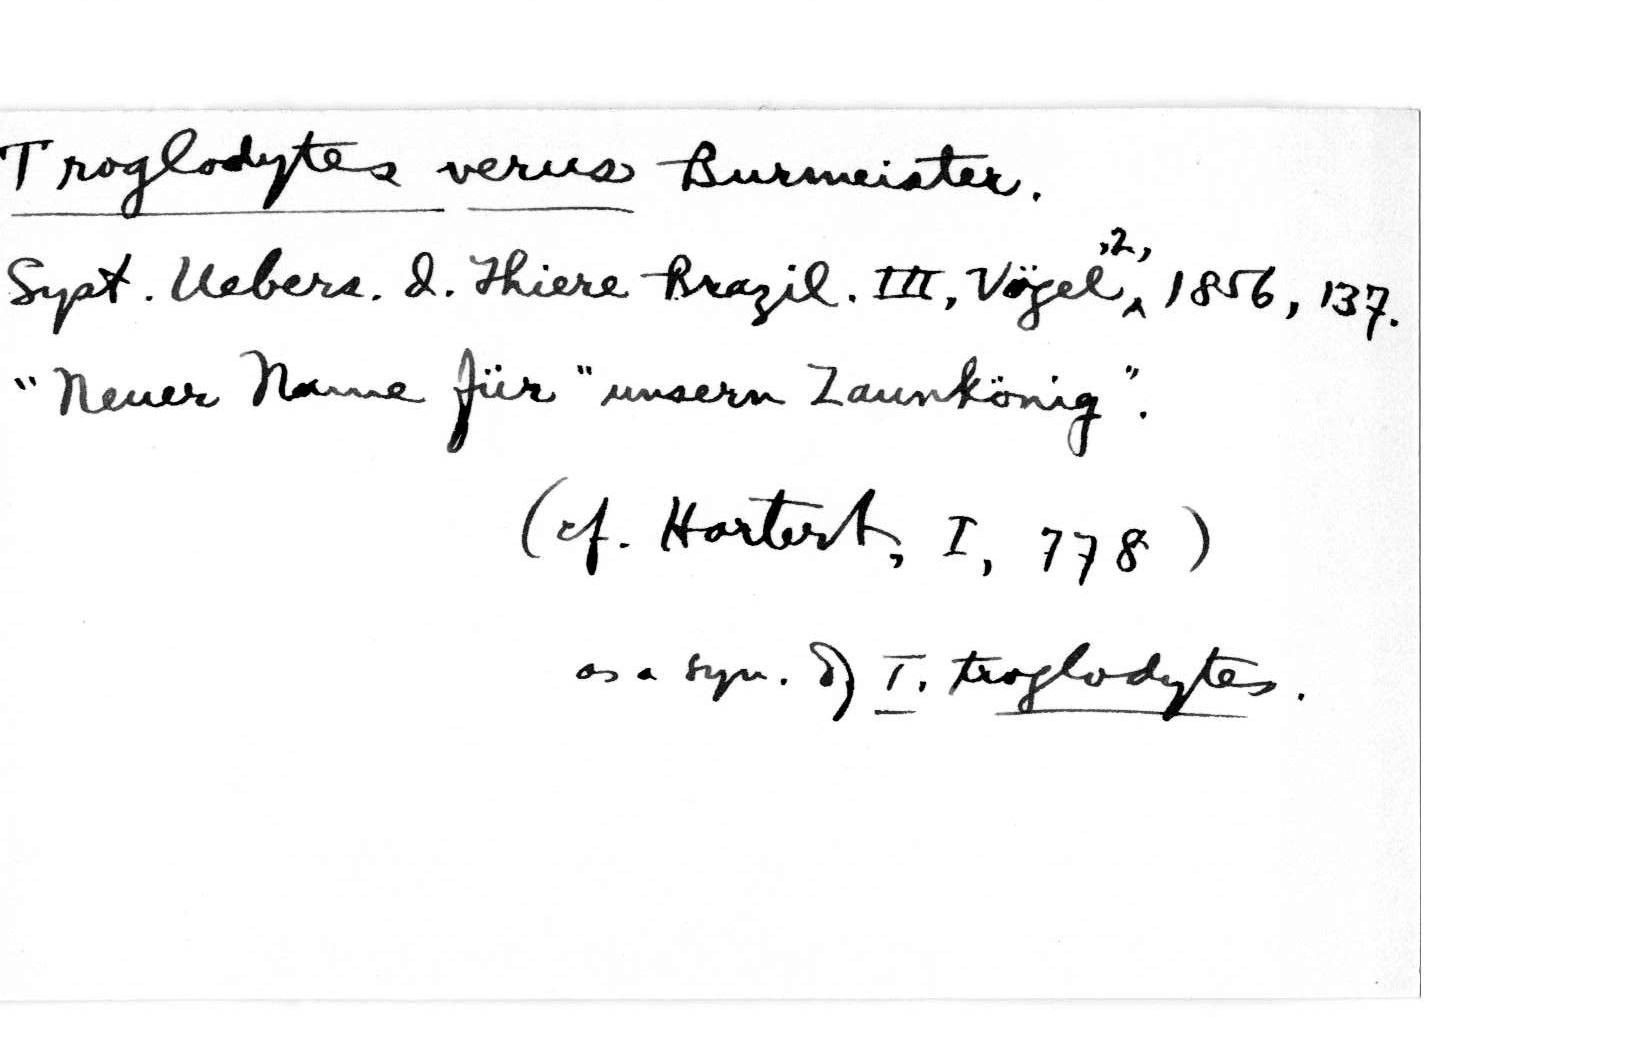 Troglodytes verus Burmeister.
Syst. Uebers. d. Thiere Brazil. III, Vögel, 2, 1856, 137.
"Neuer Name für "unsern Zaunkönig".
(cf. Hartert, I, 778)
as a syn. of T. troglodytes.